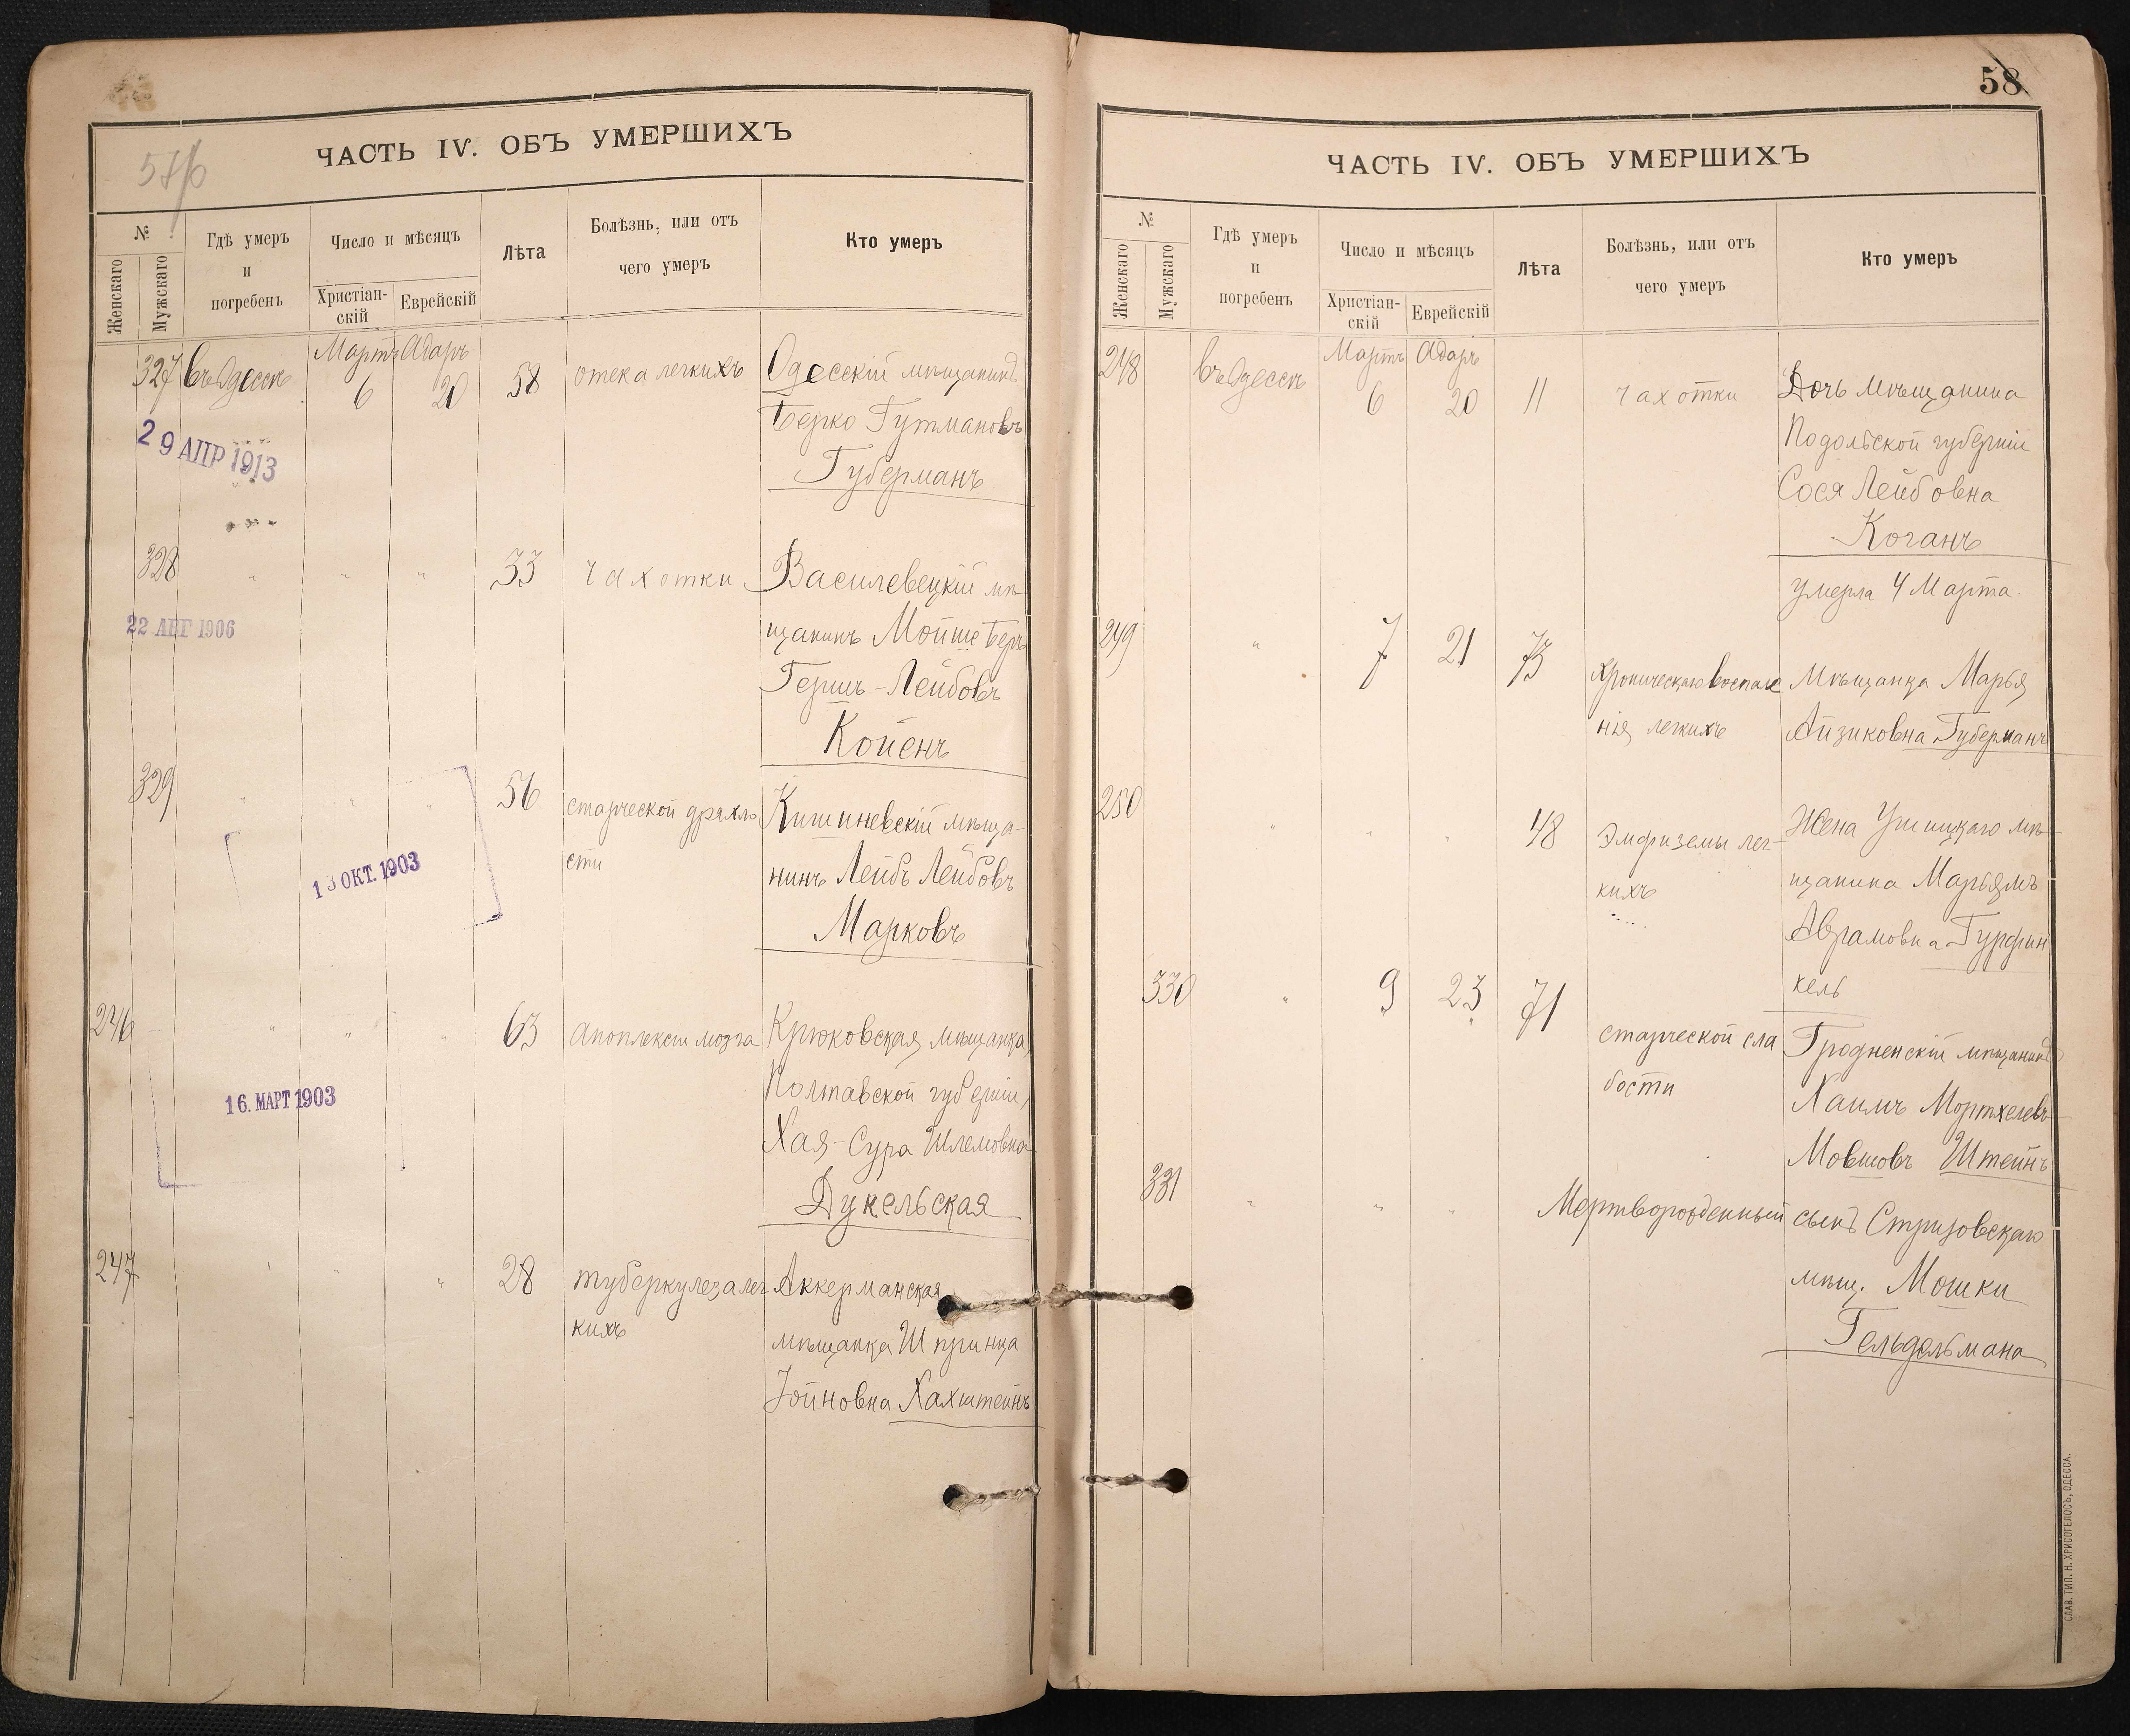 ЧАСТЬ IV. ОБЪ УМЕРШИХЪ
№
Женскаго
Мужскаго
Гдѣ умеръ
и
погребенъ
Число и мѣсяцъ
Христіан-
скій
Еврейскій
Лѣта
Болѣзнь, или отъ
чего умеръ
Кто умеръ
Мартъ Адаръ
327 въ Одессѣ 6 20 58 отека легкихъ Одесскій мѣщанинъ
Берко Гутмановъ
Губерманъ
29 АПР 1913
328 " " " 33 чахотки Василевецкій мѣ-
щанинъ Мойше Беръ
Гершъ-Лейбовъ
Койенъ
22 АВГ 1906
329 " " " 56 старческой дряхло Кишиневскій мѣща-
сти нинъ Лейбъ Лейбовъ
Марковъ
13 ОКТ. 1903
246 " " " 63 апоплексіи мозга Крюковская мѣщанка,
Полтавской губерніи,
Хая-Сура Шлемовна
Дукельская
16. МАРТ 1903
247 " " " 28 туберкулеза лег Аккерманская
кихъ мѣщанка Шпринца
Іойновна Хахштейнъ
58
ЧАСТЬ IV. ОБЪ УМЕРШИХЪ
№
Женскаго
Мужскаго
Гдѣ умеръ
и
погребенъ
Число и мѣсяцъ
Христіан-
скій
Еврейскій
Лѣта
Болѣзнь, или отъ
чего умеръ
Кто умеръ
Мартъ Адаръ
248 въ Одессѣ 6 20 11 чахотки Дочь мѣщанина
Подольской губерніи
Сося Лейбовна
Коганъ
умерла 4 Марта.
249 " 7 21 73 хроническаго воспале Мѣщанка Марья
нія легкихъ Айзиковна Губерманъ
250 " " " 48 Эмфиземы лег- Жена Ушицкаго мѣ-
кихъ щанина Марьямъ
Аврамовна Гурфин
кель
330 " 9 23 71 старческой сла Гродненскій мѣщанинъ
бости Хаимъ Мортхелевъ-
Мовшовъ Штейнъ
331 " " " Мертворожденный сынъ Стризовскаго
мѣщ. Мошки
Гельдельмана
СЛАВ. ТИП. Н. ХРИСОГЕЛОСЪ, ОДЕССА.